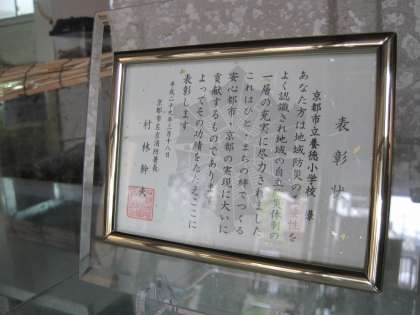 表彰状
京都市立養徳小学校 様
あなた方は地域防災の重要性を
よく認識され地域の自主防災体制の
一層の充実に尽力されました
これはひと・まちの絆でつくる
安心都市・京都の実現に大いに
貢献するものであります
よってその功績をたたえここに
表彰します
平成二十年三月十八日
京都市左京消防署長
村林幹夫